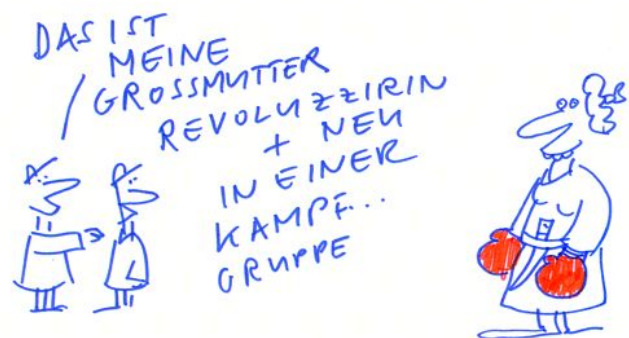 DAS IST
MEINE
GROSSMUTTER
REVOLUZZIRIN
+ NEU
IN EINER
KAMPF...
GRUPPE